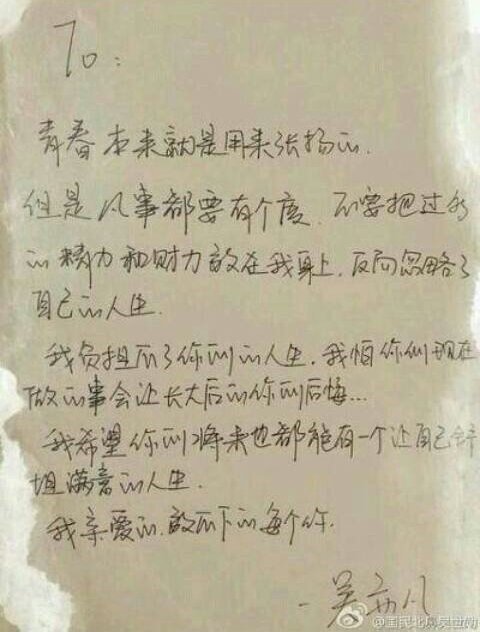 To:
青春本来就是用来张扬的.
但是凡事都要有个度. 不要把过多
的精力和财力放在我身上. 反而忽略了
自己的人生.
我负担不了你们的人生. 我怕你们现在
做的事会让长大后的你们后悔...
我希望你们将来也都能有一个让自己
满意的人生.
我亲爱的. 放不下的每个你.
-吴亦凡